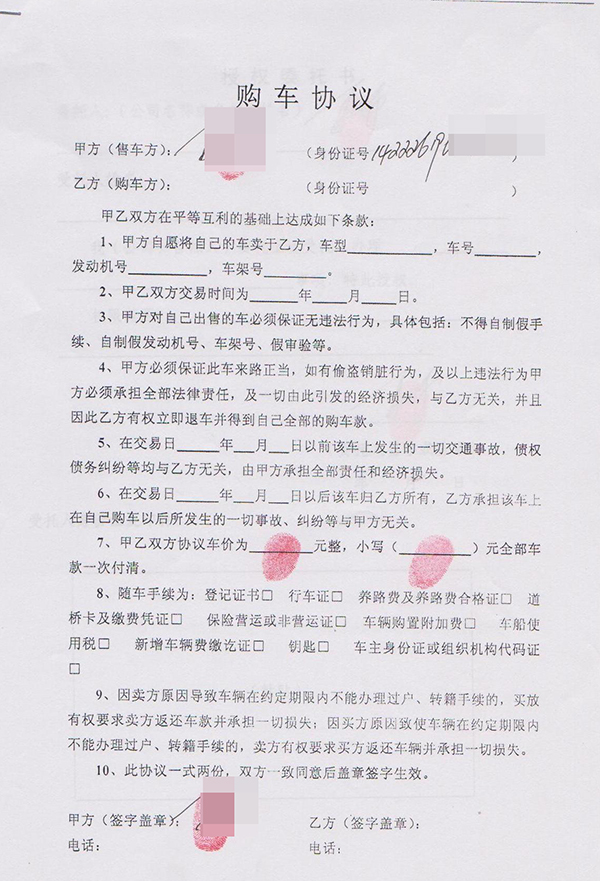 购车协议
甲方（售车方）： （身份证号142226196 ）
乙方（购车方）： （身份证号 ）
甲乙双方在平等互利的基础上达成如下条款：
1、甲方自愿将自己的车卖于乙方，车型____________，车号________，
发动机号__________，车架号________。
2、甲乙双方交易时间为______年____月____日。
3、甲方对自己出售的车必须保证无违法行为，具体包括：不得自制假手
续、自制假发动机号、车架号、假审验等。
4、甲方必须保证此车来路正当，如有偷盗销脏行为，及以上违法行为甲
方必须承担全部法律责任，及一切由此引发的经济损失，与乙方无关，并且
因此乙方有权立即退车并得到自己全部的购车款。
5、在交易日______年___月___日以前该车上发生的一切交通事故，债权
债务纠纷等均与乙方无关，由甲方承担全部责任和经济损失。
6、在交易日______年___月___日以后该车归乙方所有，乙方承担该车上
在自己购车以后所发生的一切事故、纠纷等与甲方无关。
7、甲乙双方协议车价为________元整，小写（________）元全部车
款一次付清。
8、随车手续为：登记证书□ 行车证□ 养路费及养路费合格证□ 道
桥卡及缴费凭证□ 保险营运或非营运证□ 车辆购置附加费□ 车船使
用税□ 新增车辆费缴讫证□ 钥匙□ 车主身份证或组织机构代码证
□
9、因卖方原因导致车辆在约定期限内不能办理过户、转籍手续的，买放
有权要求卖方返还车款并承担一切损失；因买方原因致使车辆在约定期限内
不能办理过户、转籍手续的，卖方有权要求买方返还车辆并承担一切损失。
10、此协议一式两份，双方一致同意后盖章签字生效。
甲方（签字盖章）： 乙方（签字盖章）：
电话： 电话：